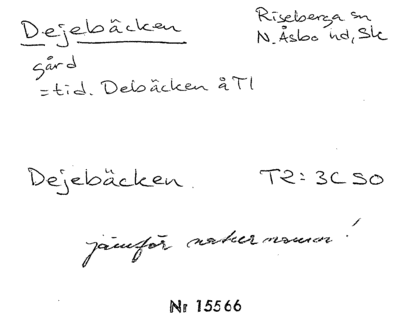 Dejebäcken
Riseberga sn
N. Åsbo hd, Sk
gård
=tid. Debäcken å T1
Dejebäcken. T2: 3C SO
jämför naturnamnen!
Nr 15566